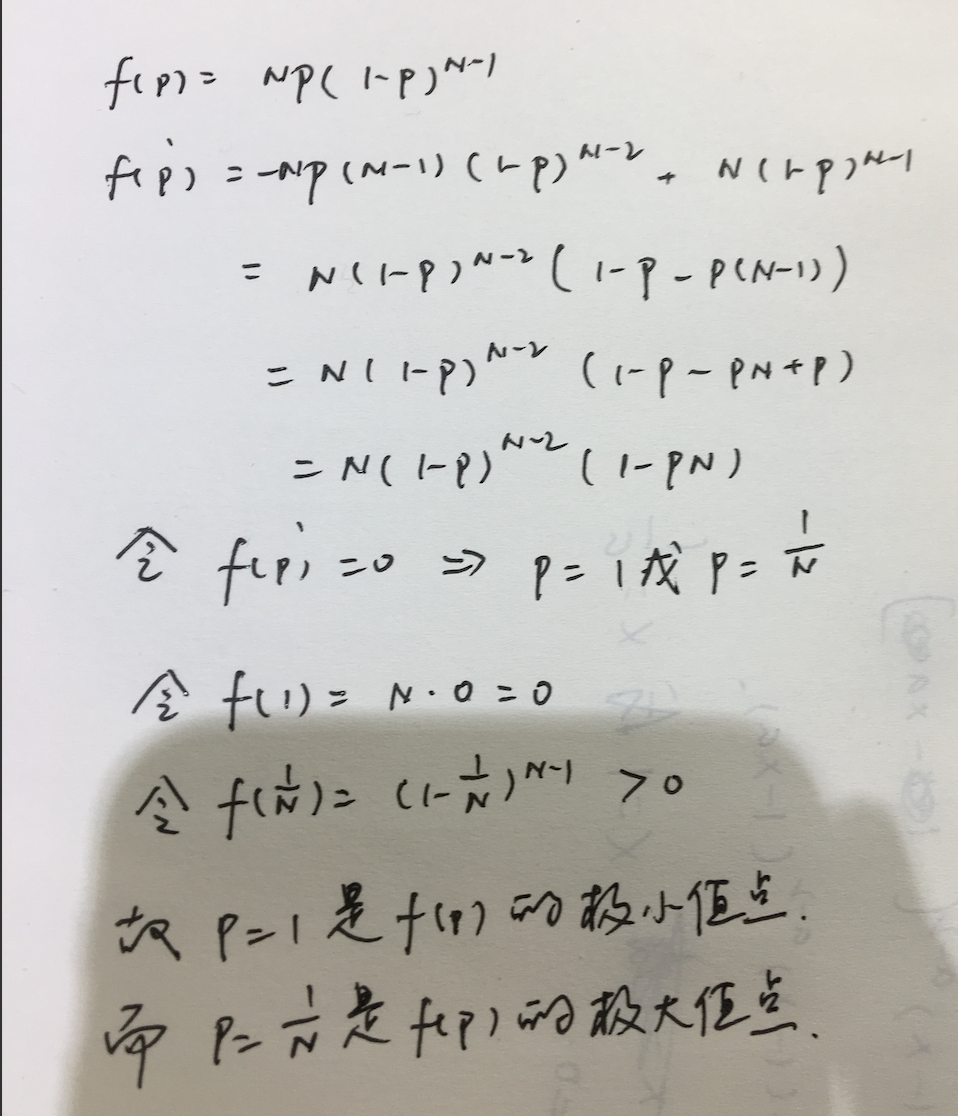 f(p) = Np(1-p)^{N-1}
f(p)' = -Np(N-1)(1-p)^{N-2} + N(1-p)^{N-1}
= N(1-p)^{N-2}(1-p-p(N-1))
= N(1-p)^{N-2}(1-p-pN+p)
= N(1-p)^{N-2}(1-pN)
令 f(p)' = 0 ⇒ p = 1 或 p = 1/N
令 f(1) = N·0 = 0
令 f(1/N) = (1-1/N)^{N-1} > 0
故 p=1 是 f(p) 的极小值点.
而 p=1/N 是 f(p) 的极大值点.